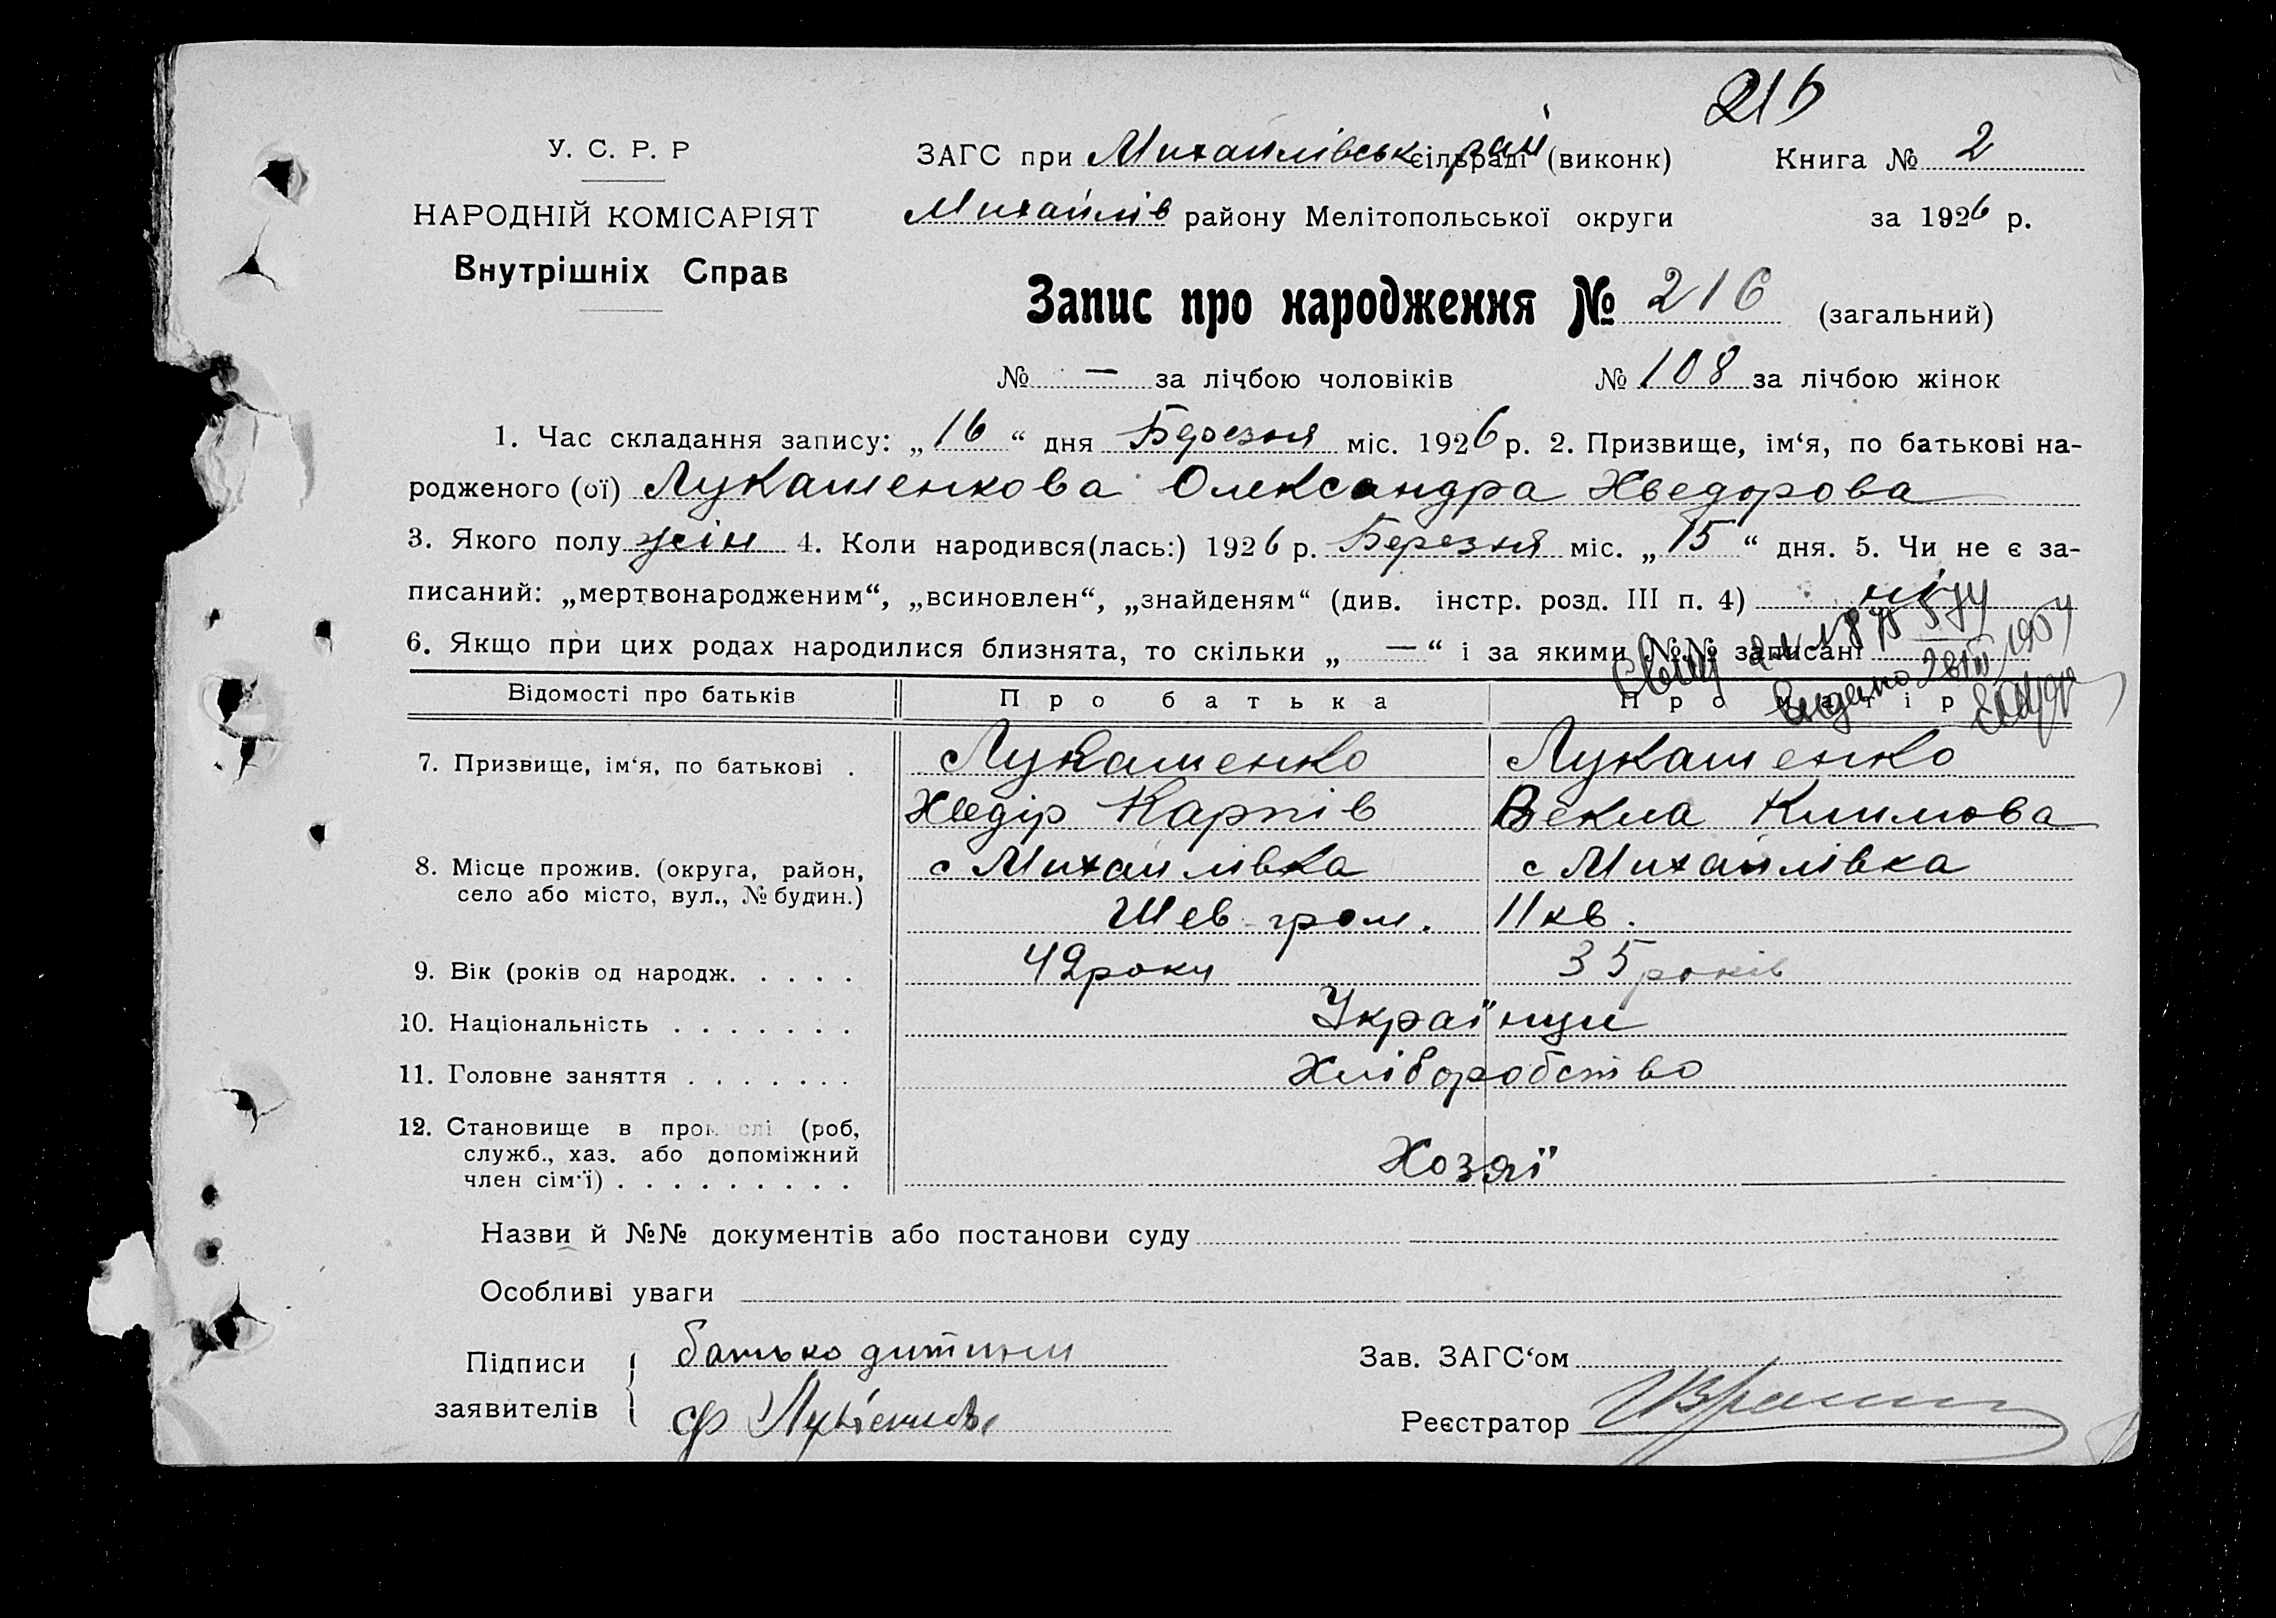 216
У. С. Р. Р
НАРОДНІЙ КОМІСАРІЯТ
Внутрішніх Справ
ЗАГС при Михайлівськ сільраді рай (виконк) Книга № 2
Михайлів району Мелітопольської округи за 1926 р.
Запис про народження № 216 (загальний)
№ — за лічбою чоловіків № 108 за лічбою жінок
1. Час складання запису: „16“ дня Березня міс. 1926 р. 2. Призвище, ім‘я, по батькові на-
родженого (ої) Лукашенкова Олександра Хведорова
3. Якого полу жін 4. Коли народився(лась:) 1926 р. Березня міс. „15“ дня. 5. Чи не є за-
писаний: „мертвонародженим“, „всиновлен“, „знайденям“ (див. інстр. розд. III п. 4) ні
6. Якщо при цих родах народилися близнята, то скільки „—“ і за якими №№ записані
видано 1954
Відомості про батьків Про батька Про матір
7. Призвище, ім‘я, по батькові . Лукашенко Лукашенко
Хведір Карпів Векла Климова
8. Місце прожив. (округа, район, с Михайлівка с Михайлівка
село або місто, вул., № будин.) Шев. гром. 11 кв.
9. Вік (років од народж. . . . . 42 роки 35 років
10. Національність . . . . . . . Українци
11. Головне заняття . . . . . . . Хліборобство
12. Становище в промислі (роб,
служб., хаз. або допоміжний
член сім‘ї) . . . . . . . . . Хозяї
Назви й №№ документів або постанови суду
Особливі уваги
Підписи батько дитини Зав. ЗАГС‘ом
заявителів Реєстратор